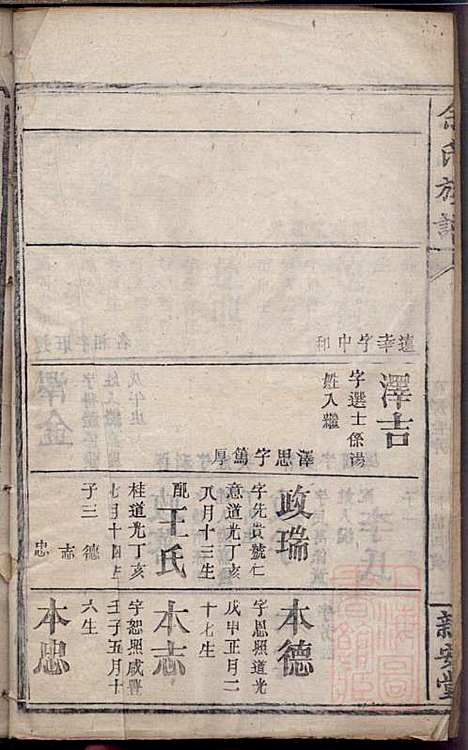 余氏族譜
新安堂
遠幸字中和
澤吉
字選士係湯
姓入繼
澤思字篤厚
政瑞
字先貴號仁
意道光丁亥
八月十三生
配王氏
桂道光丁亥
七月十四生
子三 德 志 忠
本德
字恩照道光
戊申正月二
十七生
本志
字恕照咸豐
壬子五月十
六生
本忠